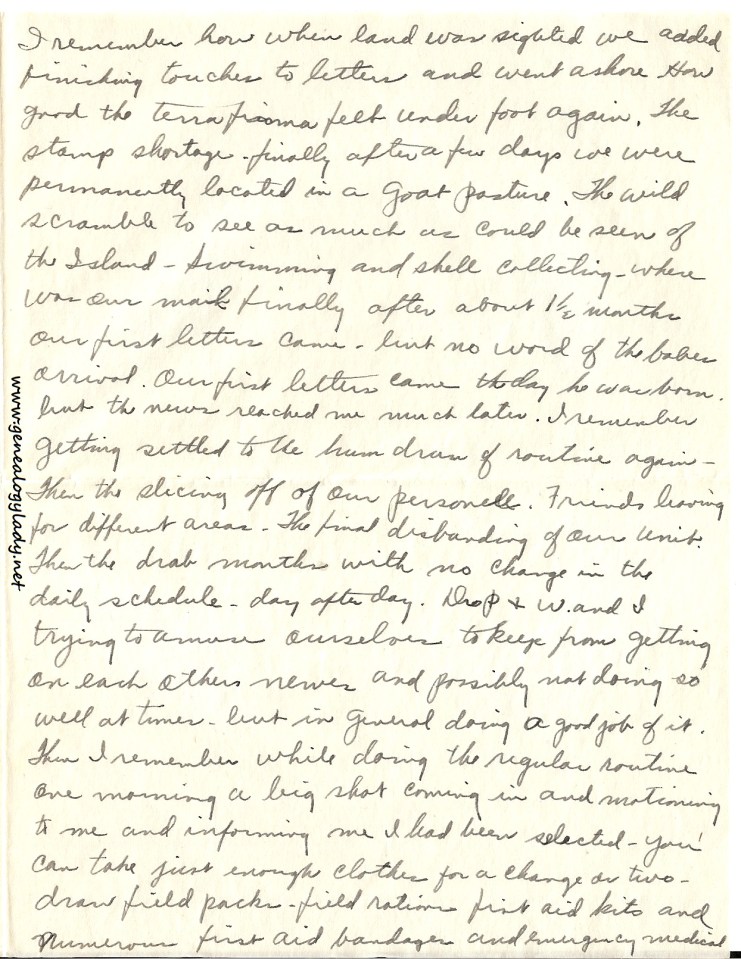 I remember how when land was sighted we added
finishing touches to letters and went ashore How
good the terra firma felt under foot again. The
stamp shortage - finally after a few days we were
permanently located in a Goat pasture. The wild
scramble to see as much as could be seen of
the Island - swimming and shell collecting - where
was our mail finally after about 1½ months
our first letters came - but no word of the babes
arrival. Our first letters came the day he was born.
but the news reached me much later. I remember
getting settled to the hum drum of routine again -
Then the slicing off of our personell. Friends leaving
for different areas - The final disbanding of our Unit.
Then the drab months with no change in the
daily schedule - day after day. Drop & W. and I
trying to amuse ourselves to keep from getting
on each others nerves and possibly not doing so
well at times - but in general doing a good job of it.
Then I remember while doing the regular routine
one morning a big shot coming in and motioning
to me and informing me I had been selected - you
can take just enough clothes for a change or two -
draw field packs - field rations first aid kits and
numerous first aid bandages and emergency medical
www.genealogylady.net